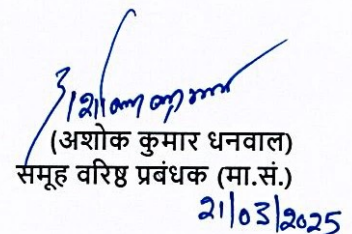 अशोक कुमार
(अशोक कुमार धनवाल)
समूह वरिष्ठ प्रबंधक (मा.सं.)
21/03/2025